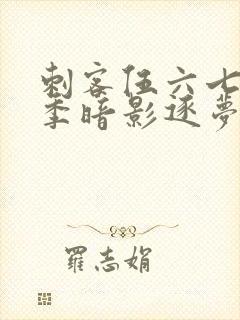 刺客伍六七
季暗影逐夢
羅志娟